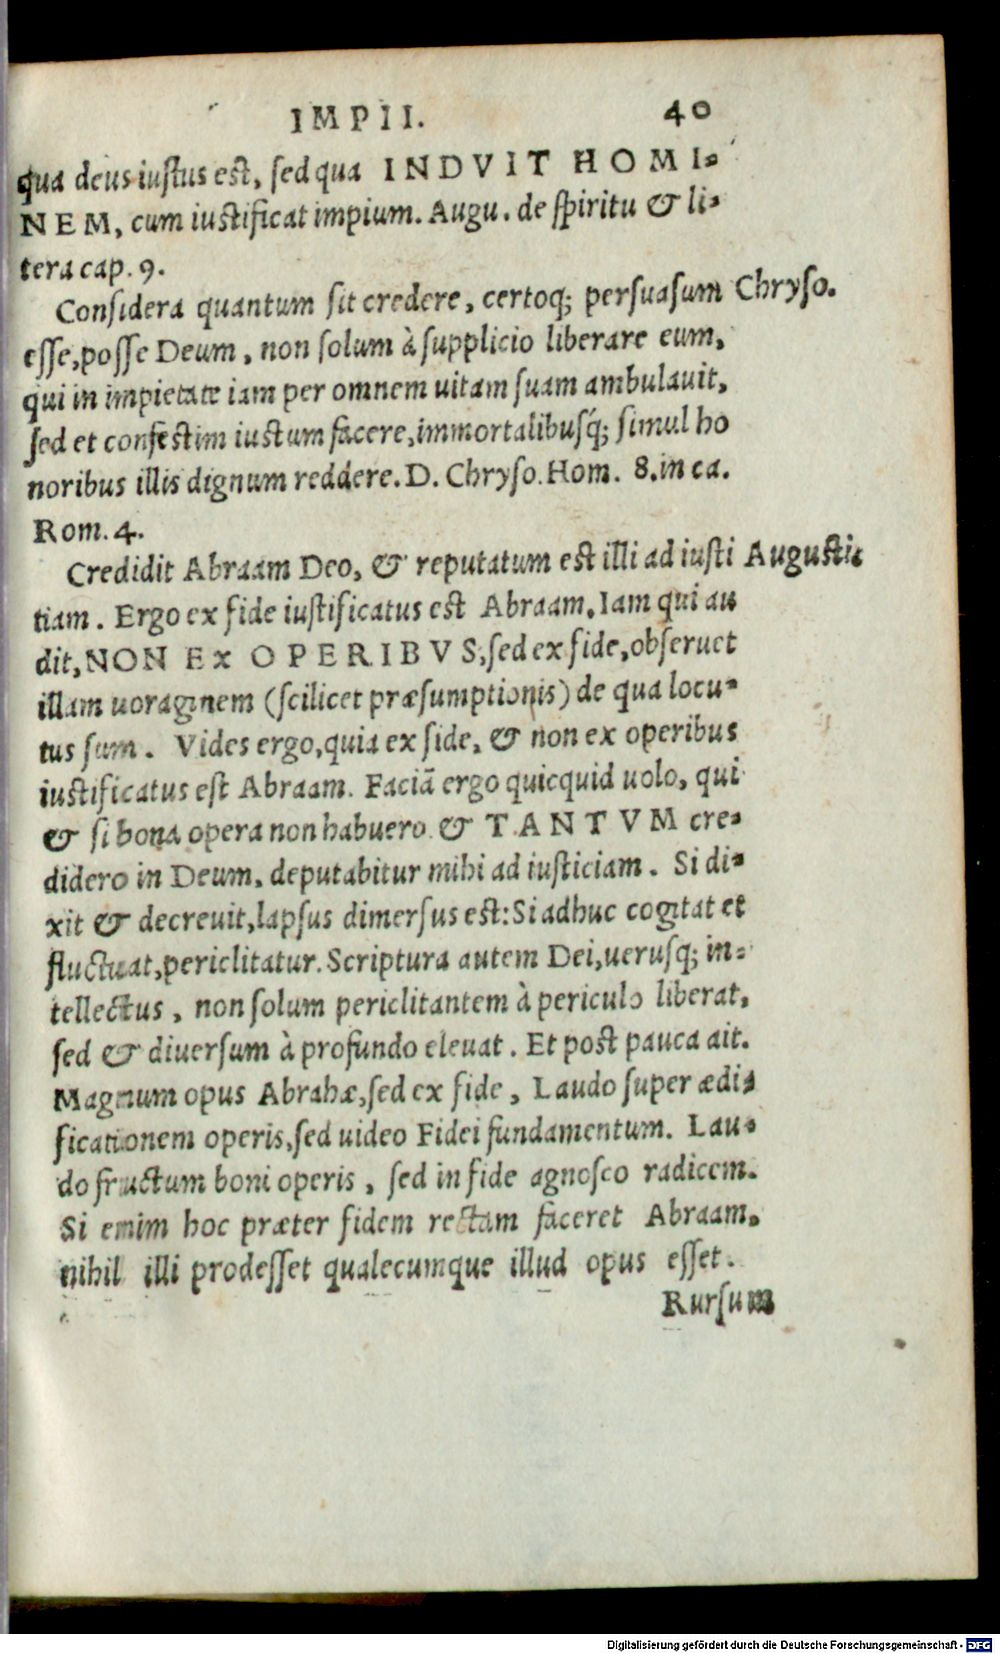 IMPII. 40
qua deus iustus est, sed qua INDVIT HOMI-
NEM, cum iustificat impium. Augu. de spiritu & li-
tera cap. 9.
Considera quantum sit credere, certoq; persuasum Chryso.
esse, posse Deum, non solum à supplicio liberare eum,
qui in impietate iam per omnem uitam suam ambulauit,
sed et confestim iustum facere, immortalibusq́; simul ho
noribus illis dignum reddere. D. Chryso. Hom. 8. in ca.
Rom. 4.
Credidit Abraam Deo, & reputatum est illi ad iusti Augusti:
tiam. Ergo ex fide iustificatus est Abraam. Iam qui au
dit, NON EX OPERIBVS, sed ex fide, obseruet
illam uoraginem (scilicet præsumptionis) de qua locu-
tus sum. Vides ergo, quia ex fide, & non ex operibus
iustificatus est Abraam. Faciā ergo quicquid uolo, qui
& si bona opera non habuero & TANTVM cre-
didero in Deum, deputabitur mihi ad iusticiam. Si di-
xit & decreuit, lapsus dimersus est: Si adhuc cogitat et
fluctuat, periclitatur. Scriptura autem Dei, uerusq; in-
tellectus, non solum periclitantem à periculo liberat,
sed & diuersum à profundo eleuat. Et post pauca ait.
Magnum opus Abrahæ, sed ex fide, Laudo super ædi-
ficationem operis, sed uideo Fidei fundamentum. Lau-
do fructum boni operis, sed in fide agnosco radicem.
Si enim hoc præter fidem rectam faceret Abraam,
nihil illi prodesset qualecumque illud opus esset.
Rursum
Digitalisierung gefördert durch die Deutsche Forschungsgemeinschaft - DFG